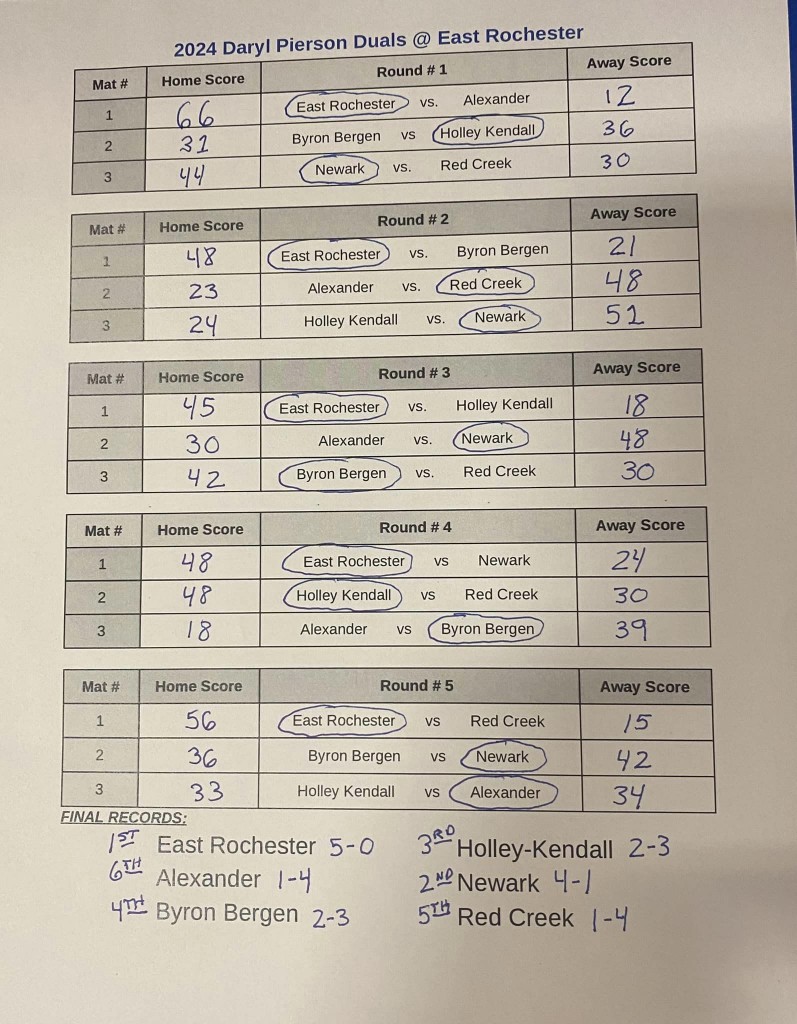 2024 Daryl Pierson Duals @ East Rochester
Mat # Home Score Round # 1 Away Score
1 66 East Rochester vs. Alexander 12
2 31 Byron Bergen vs Holley Kendall 36
3 44 Newark vs. Red Creek 30
Mat # Home Score Round # 2 Away Score
1 48 East Rochester vs. Byron Bergen 21
2 23 Alexander vs. Red Creek 48
3 24 Holley Kendall vs. Newark 51
Mat # Home Score Round # 3 Away Score
1 45 East Rochester vs. Holley Kendall 18
2 30 Alexander vs. Newark 48
3 42 Byron Bergen vs. Red Creek 30
Mat # Home Score Round # 4 Away Score
1 48 East Rochester vs Newark 24
2 48 Holley Kendall vs Red Creek 30
3 18 Alexander vs Byron Bergen 39
Mat # Home Score Round # 5 Away Score
1 56 East Rochester vs Red Creek 15
2 36 Byron Bergen vs Newark 42
3 33 Holley Kendall vs Alexander 34
FINAL RECORDS:
1ST East Rochester 5-0 3RD Holley-Kendall 2-3
6TH Alexander 1-4 2ND Newark 4-1
4TH Byron Bergen 2-3 5TH Red Creek 1-4